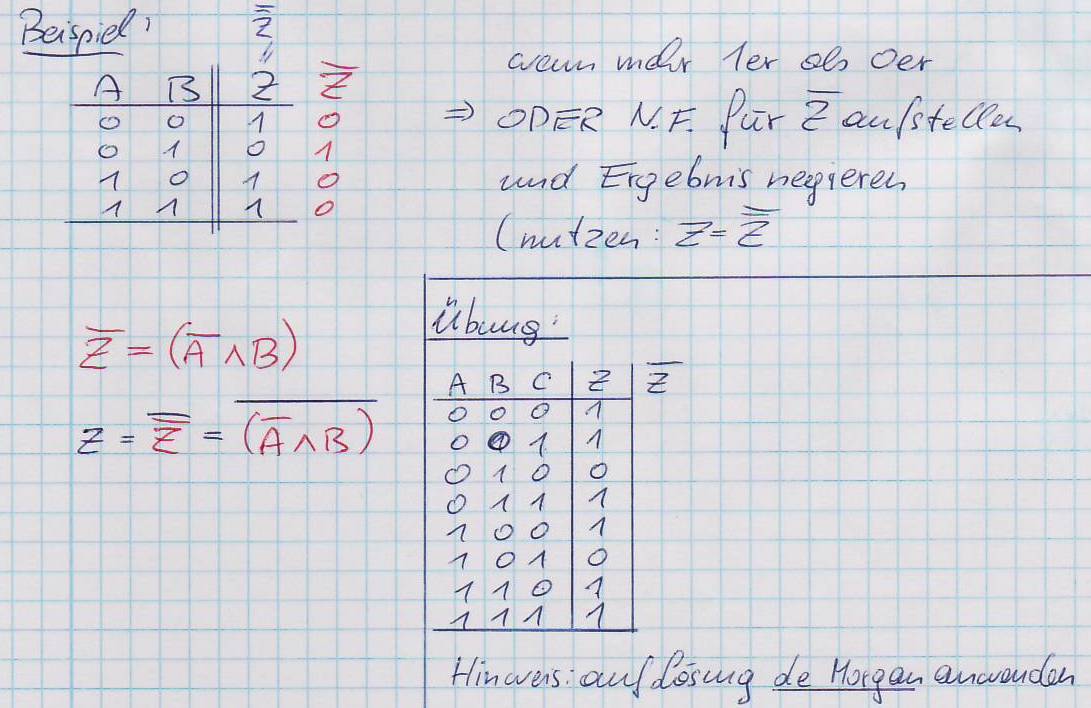 Beispiel:
Z̿
"
A B Z Z̅
0 0 1 0
0 1 0 1
1 0 1 0
1 1 1 0
wenn mehr 1er als 0er
⇒ ODER N.F. für Z̅ aufstellen
und Ergebnis negieren
(nutzen: Z = Z̿
Z̅ = (A̅ ∧ B)
Z = Z̿ = \overline{(A̅ ∧ B)}
Übung:
A B C Z Z̅
0 0 0 1
0 0 1 1
0 1 0 0
0 1 1 1
1 0 0 1
1 0 1 0
1 1 0 1
1 1 1 1
Hinweis: auf Lösung de Morgan anwenden